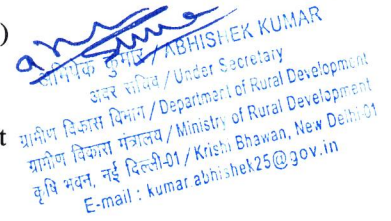 )
अभिषेक कुमार / ABHISHEK KUMAR
अवर सचिव / Under Secretary
ग्रामीण विकास विभाग / Department of Rural Development
t
ग्रामीण विकास मंत्रालय / Ministry of Rural Development
कृषि भवन, नई दिल्ली-01 / Krishi Bhawan, New Delhi-01
E-mail : kumar.abhishek25@gov.in